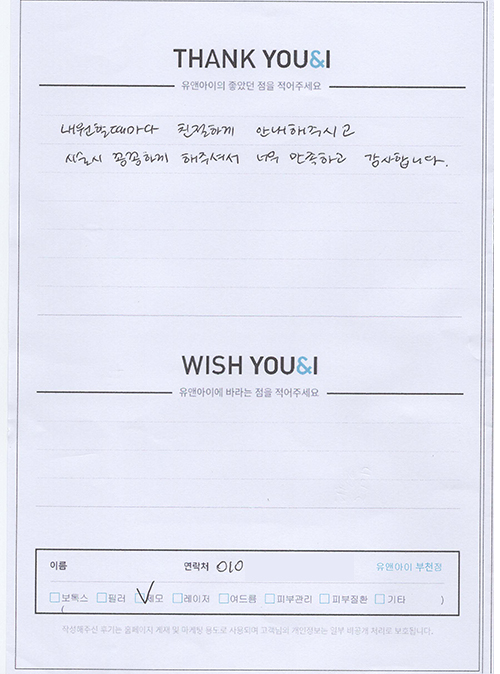 THANK YOU&I
유앤아이의 좋았던 점을 적어주세요
내원할때마다 친절하게 안내해주시고
시술시 꼼꼼하게 해주셔서 너무 만족하고 감사합니다.
WISH YOU&I
유앤아이에 바라는 점을 적어주세요
이름 연락처 010 유앤아이 부천점
보톡스 필러 제모 레이저 여드름 피부관리 피부질환 기타 )
(
작성해주신 후기는 홈페이지 게재 및 마케팅 용도로 사용되며 고객님의 개인정보는 일부 비공개 처리로 보호됩니다.